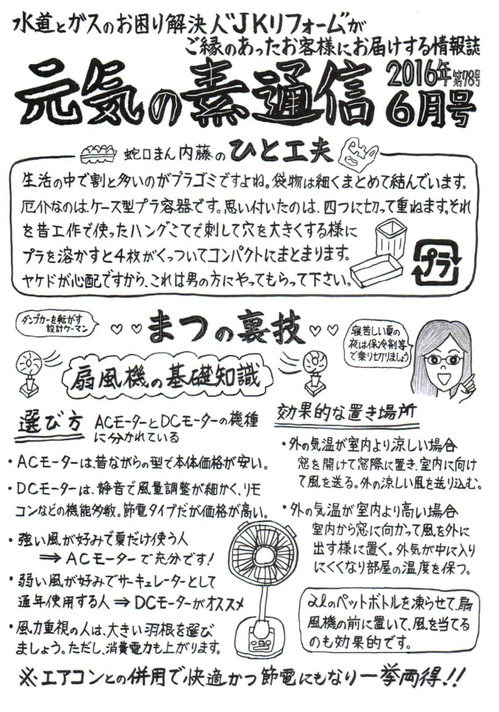 水道とガスのお困り解決人“JKリフォーム”が
ご縁のあったお客様にお届けする情報誌
元気の素通信
2016年 第78号
6月号
蛇口まん内藤の ひと工夫
生活の中で割と多いのがプラゴミですよね。袋物は細くまとめて結んでいます。
厄介なのは、ケース型プラ容器です。思い付いたのは、四つに切って重ねます。それ
を昔工作で使ったハンダごてで刺して穴を大きくする様に
プラを溶かすと4枚がくっついてコンパクトにまとまります。
ヤケドが心配ですから、これは男の方にやってもらって下さい。
プラ
ダンプカーを転がす
設計ウーマン
♡♡まつの裏技♡♡
寝苦しい夏の
夜は保冷剤等
で乗り切りましょう
扇風機の基礎知識
選び方 ACモーターとDCモーターの機種
に分かれている
・ACモーターは、昔ながらの型で本体価格が安い。
・DCモーターは、静音で風量調整が細かく、リモ
コンなどの機能多数。節電タイプだが価格が高い。
・強い風が好みで夏だけ使う人
⇒ACモーターで充分です!
・弱い風が好みでサーキュレーターとして
通年使用する人⇒DCモーターがオススメ
・風力重視の人は、大きい羽根を選び
ましょう。ただし、消費電力も上がります。
効果的な置き場所
・外の気温が室内より涼しい場合
窓を開けて窓際に置き、室内に向け
て風を送る。外の涼しい風を送り込む。
・外の気温が室内より高い場合
室内から窓に向かって風を外に
出す様に置く。外気が中に入り
にくくなり部屋の温度を保つ。
2lのペットボトルを凍らせて、扇
風機の前に置いて、風を当てる
のも効果的です。
※エアコンとの併用で快適かつ節電にもなり一挙両得!!